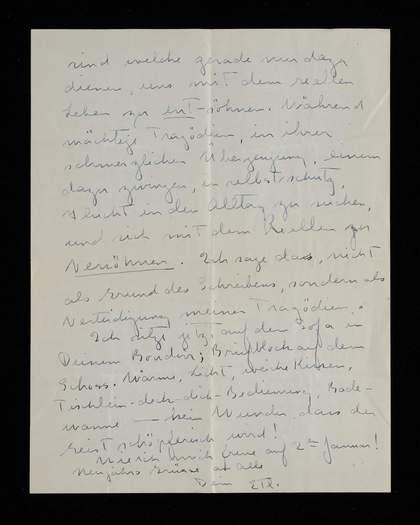 sind welche gerade nur dazu
dienen, uns mit dem reellen
Leben zu ent-söhnen. Während
mächtige Tragödien, in ihrer
schmerzlichen Überzeugung, einem
dazu zwingen, in selbstschutz,
flucht in den Alltag zu suchen,
und sich mit dem Reellen zu
versöhnen. Ich sage das, nicht
als Grund des Schreibens, sondern als
Verteidigung meiner Tragödien.
Ich sitze jetzt auf dem Sofa in
Deinem Boudoir; Briefblock auf dem
Schoss. Wärme, Licht, weiche Kissen,
Tischlein-deck-dich-Bedienung, Bade-
wanne — kein Wunder dass der
Geist schöpferisch wird!
Wie ich mich freue auf 2ten Januar!
Neujahrs Grüsse an alle
Dein